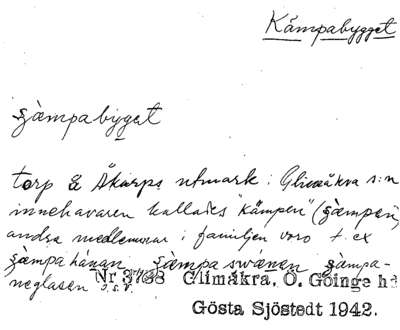 Kämpabygget
ʂàmpabyget
torp å Åkarps utmark i Glimåkra s:n
innehavaren kallades "kämpen" (ʂàmpen)
andra medlemmar i familjen voro t. ex
ʂàmpa hánan ʂàmpa swænen ʂàmpa-
neglasen o.s.v.
Nr 3788 Glimåkra, Ö. Göinge hd
Gösta Sjöstedt 1942.